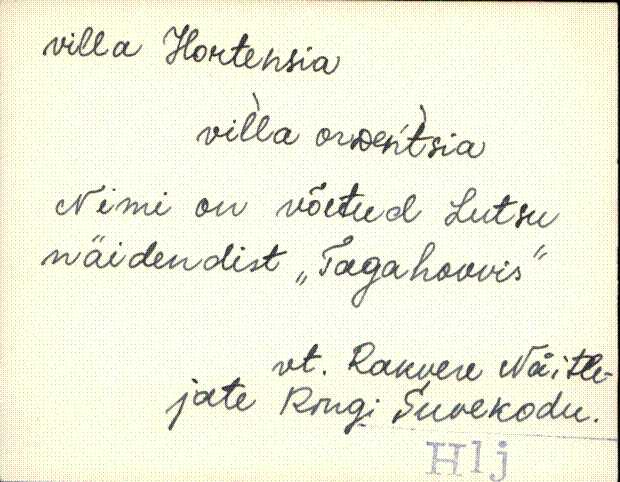 villa Hortensia
Nimi on võetud Lutsu
näidendist „Tagahoovis"
vt. Rakvere Näitle-
jate Ringi Suvekodu.
Hlj